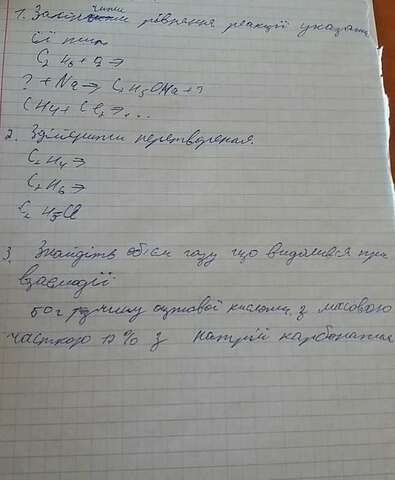 1. Закінчити рівняння реакції указати
її тип
C2 H6 + O2 →
? + Na → C2H5ONa + ?
CH4 + Cl2 → ...
2. Здійснити перетворення.
C2 H4 →
C2 H6 →
C2 H5Cl
3. Знайдіть обєм газу що виділився при
взаємодії
50 г розчину оцтової кислоти з масовою
часткою % з натрій карбонатом